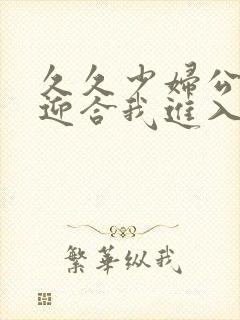 久久少婦公
迎合我進入
繁華纵我